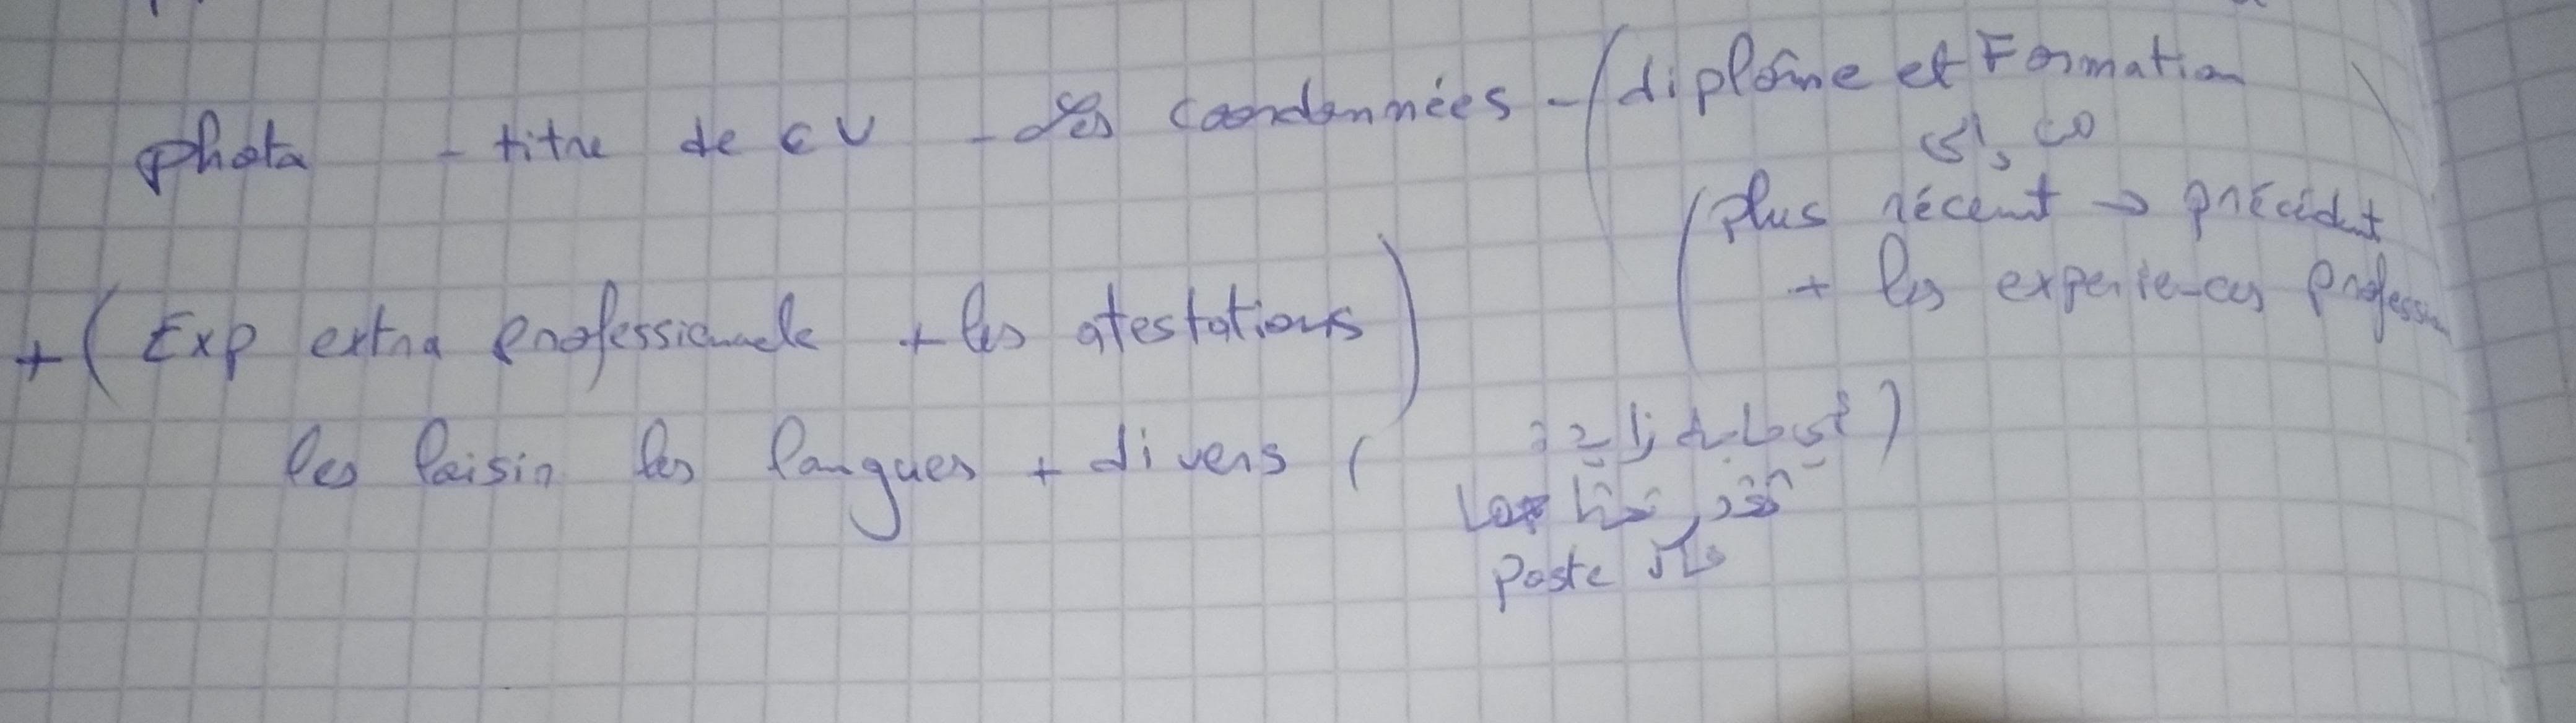 photo - titre de CV - les coordonnées - (diplôme et Formation
(plus récent → précédent
+ les experiences profession
+ (Exp extra professionnele + les atestations)
les loisir les langues + divers (
poste